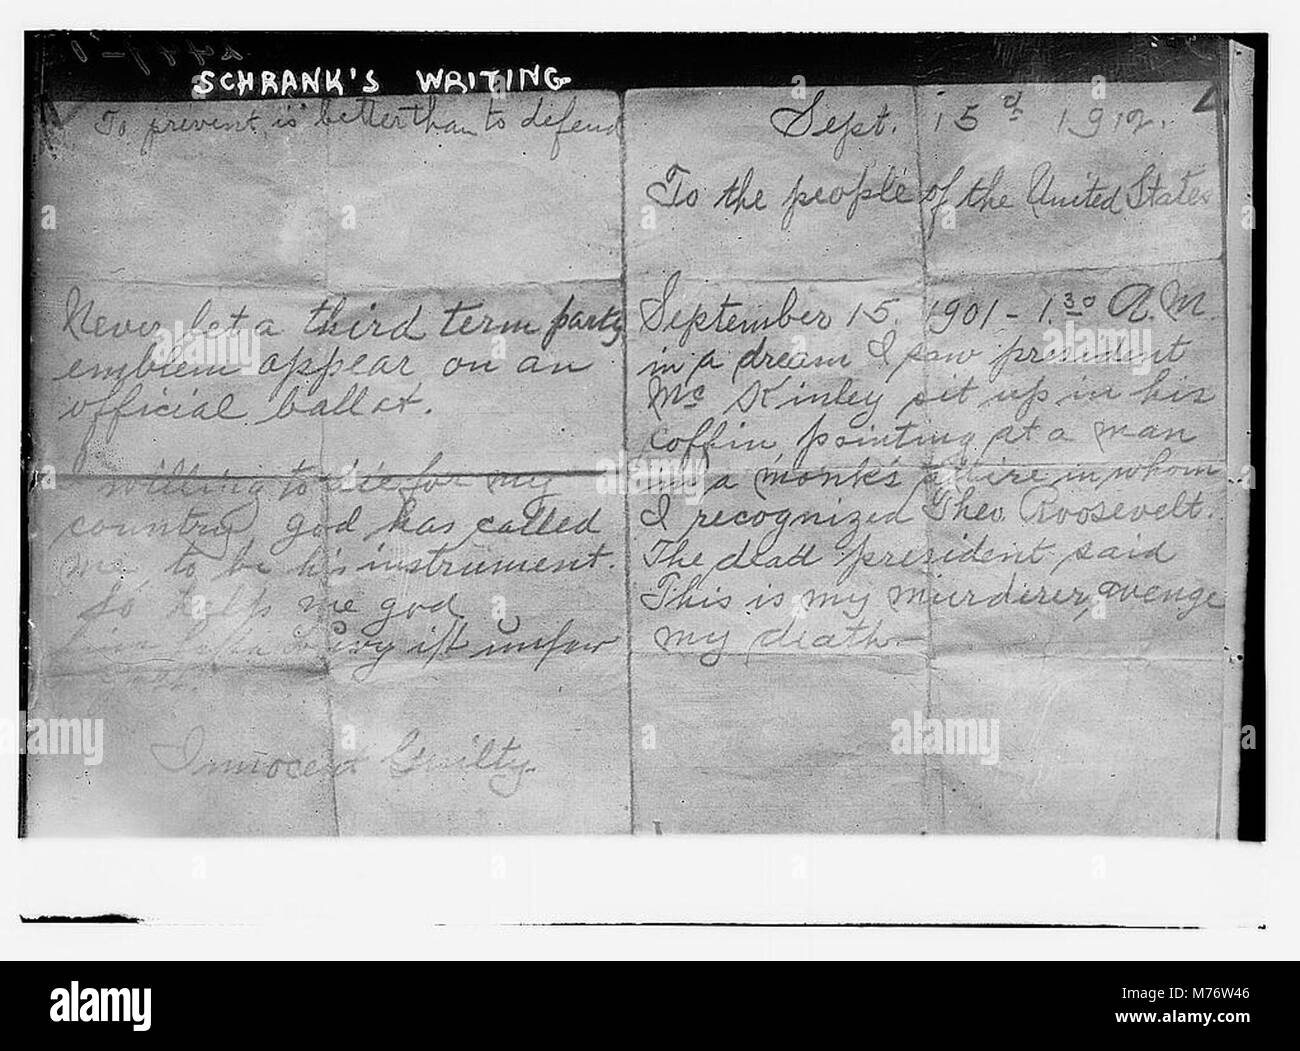 SCHRANK'S WRITING
To prevent is better than to defend
Never let a third term party
emblem appear on an
official ballot.
willing to die for my
country god has called
me to be his instrument.
So help me god
Innocent Guilty.
Sept. 15 d 1912.
To the people of the United States
September 15. 1901 - 1.30 A.M.
in a dream I saw president
McKinley sit up in his
coffin, pointing at a man
in a monk's attire in whom
I recognized Theo. Roosevelt.
The dead president said
This is my murderer, avenge
my death.
alamy
Image ID: M76W46
www.alamy.com